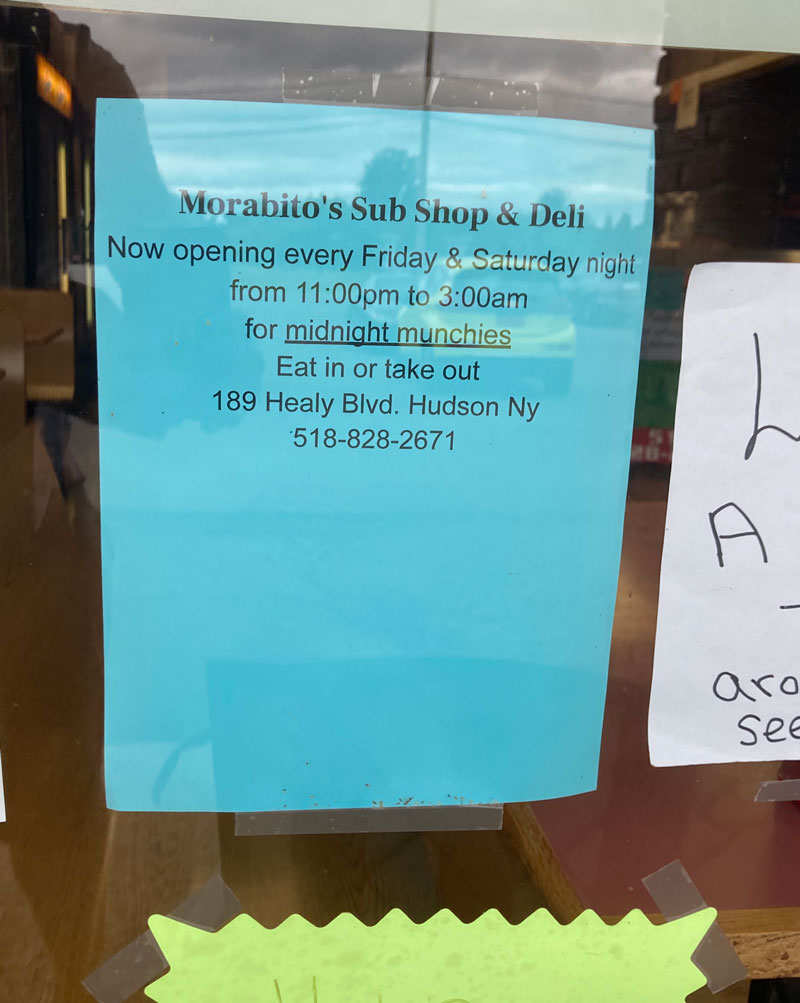 Morabito's Sub Shop & Deli
Now opening every Friday & Saturday night
from 11:00pm to 3:00am
for midnight munchies
Eat in or take out
189 Healy Blvd. Hudson Ny
518-828-2671
A
see